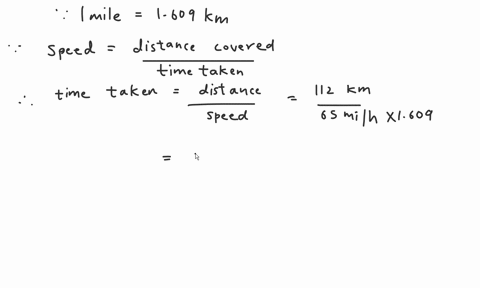 ∵ 1 mile = 1.609 km
∵ speed = distance covered / time taken
∴ time taken = distance / speed = 112 km / 65 mi/h × 1.609
=